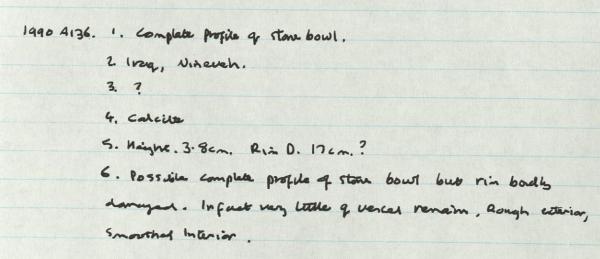 1990 A136. 1. Complete profile of stone bowl.
2. Iraq, Nineveh.
3. ?
4. Calcite
5. Height. 3.8cm. Rim D. 17cm.?
6. Possible complete profile of stone bowl but rim badly
damaged. In fact very little of vessel remains. Rough exterior,
smoothed interior.